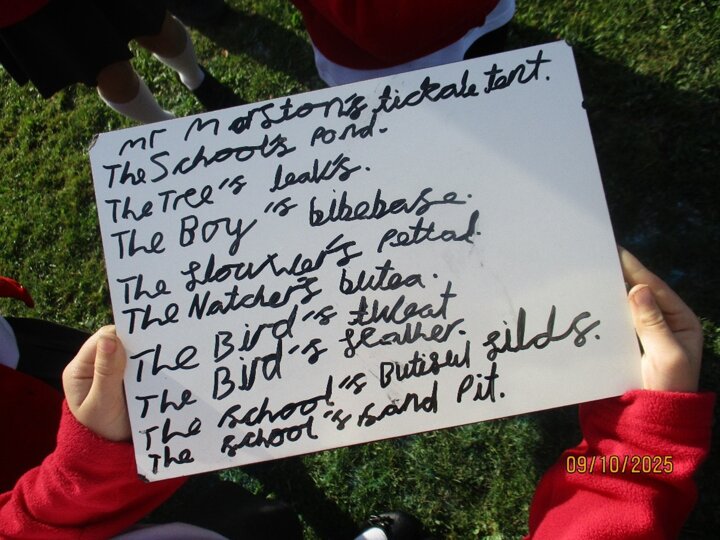 mr Marston's tickale tent.
The School's Pond.
The Tree's leak's.
The Boy's bibebase.
The flower's Pettad.
The Natcher's butea.
The Bird's threat
The Bird's feather.
The school's Butiful filds.
The school's sand Pit.
09/10/2025